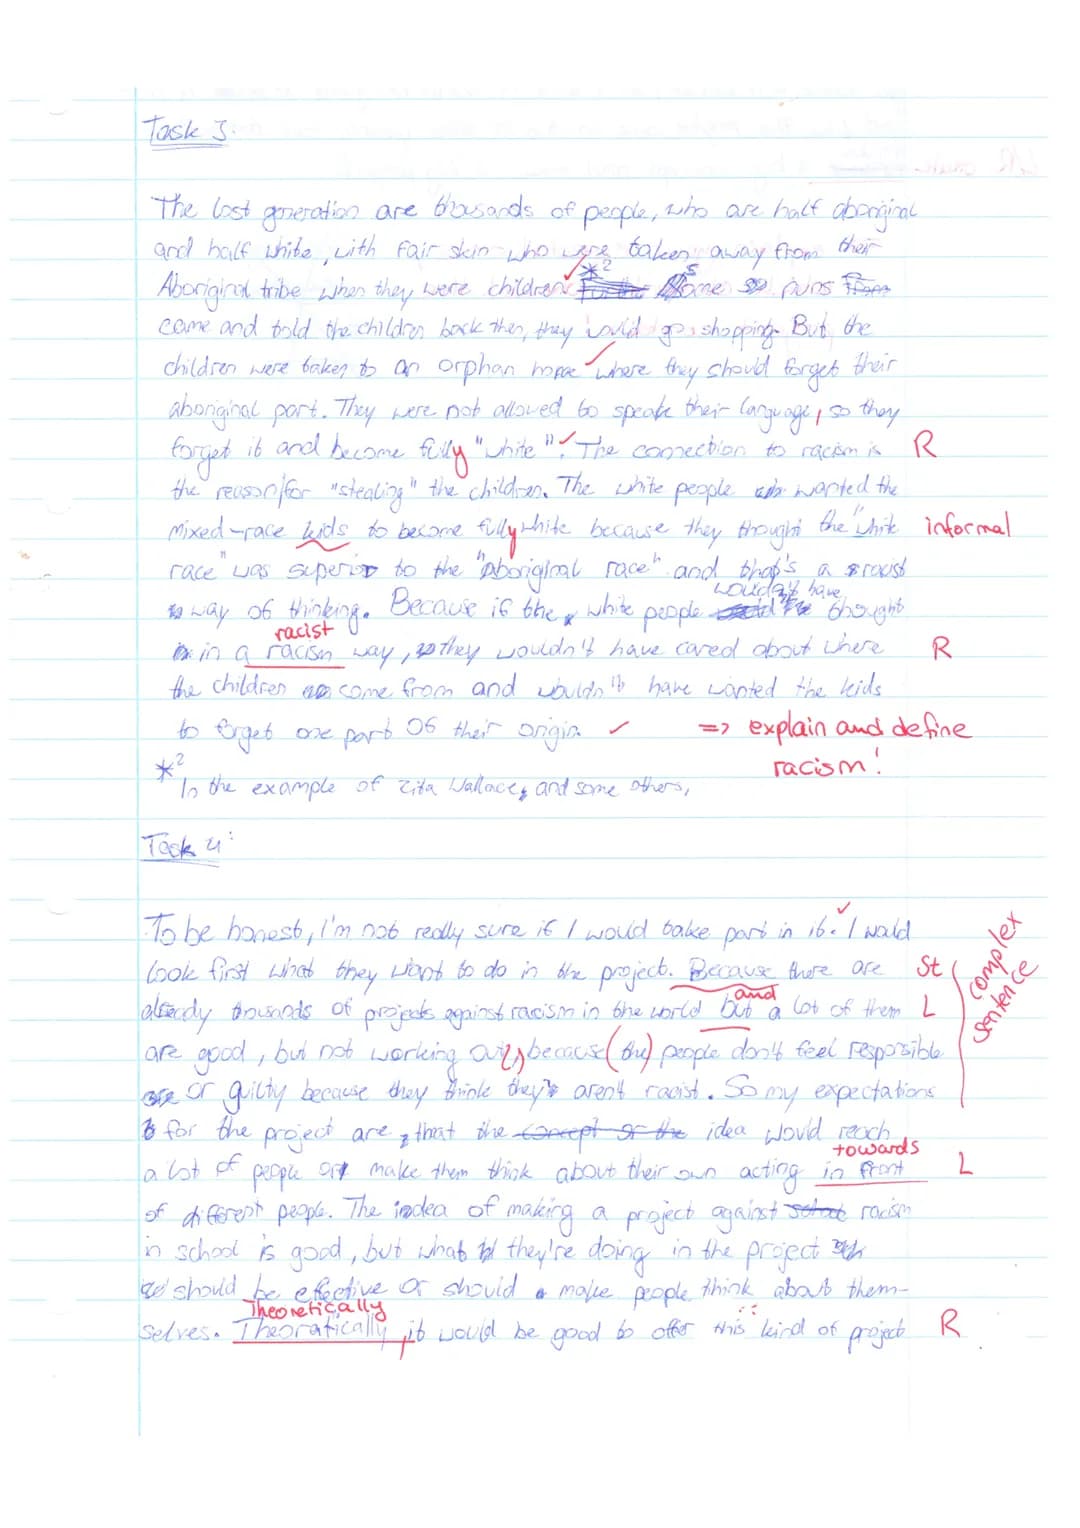 Task 3:
The lost generation are thousands of people, who are half aboriginal
and half white, with fair skin who were taken away from their
Aboriginal tribe when they were children. *2 Some nuns
came and told the children back then, they would go shopping. But the
children were taken to an orphan home where they should forget their
aboriginal part. They were not allowed to speak their language, so they
forget it and become fully "white". The connection to racism is R
the reason for "stealing" the children. The white people wanted the
mixed-race kids to become fully white because they thought the "white informal
race" was superior to the "aboriginal race" and that's a racist
wouldn't have
way of thinking. Because if the white people thought
racist
in a racism way, they wouldn't have cared about where R
the children come from and wouldn't have wanted the kids
to forget one part of their origin. => explain and define
racism!
*2
In the example of Zita Wallace, and some others,
Task 4:
To be honest, I'm not really sure if I would take part in it. I would
look first what they want to do in the project. Because there are St
complex sentence
and
already thousands of projects against racism in the world but a lot of them L
are good, but not working out, because (the) people don't feel responsible
or guilty because they think they aren't racist. So my expectations
for the project are, that the concept or the idea would reach
towards
a lot of people and make them think about their own acting in front L
of different people. The idea of making a project against racism
in school is good, but what they're doing in the project
should be effective or should make people think about them-
Theoretically
selves. Theoratically, it would be good to offer this kind of project R